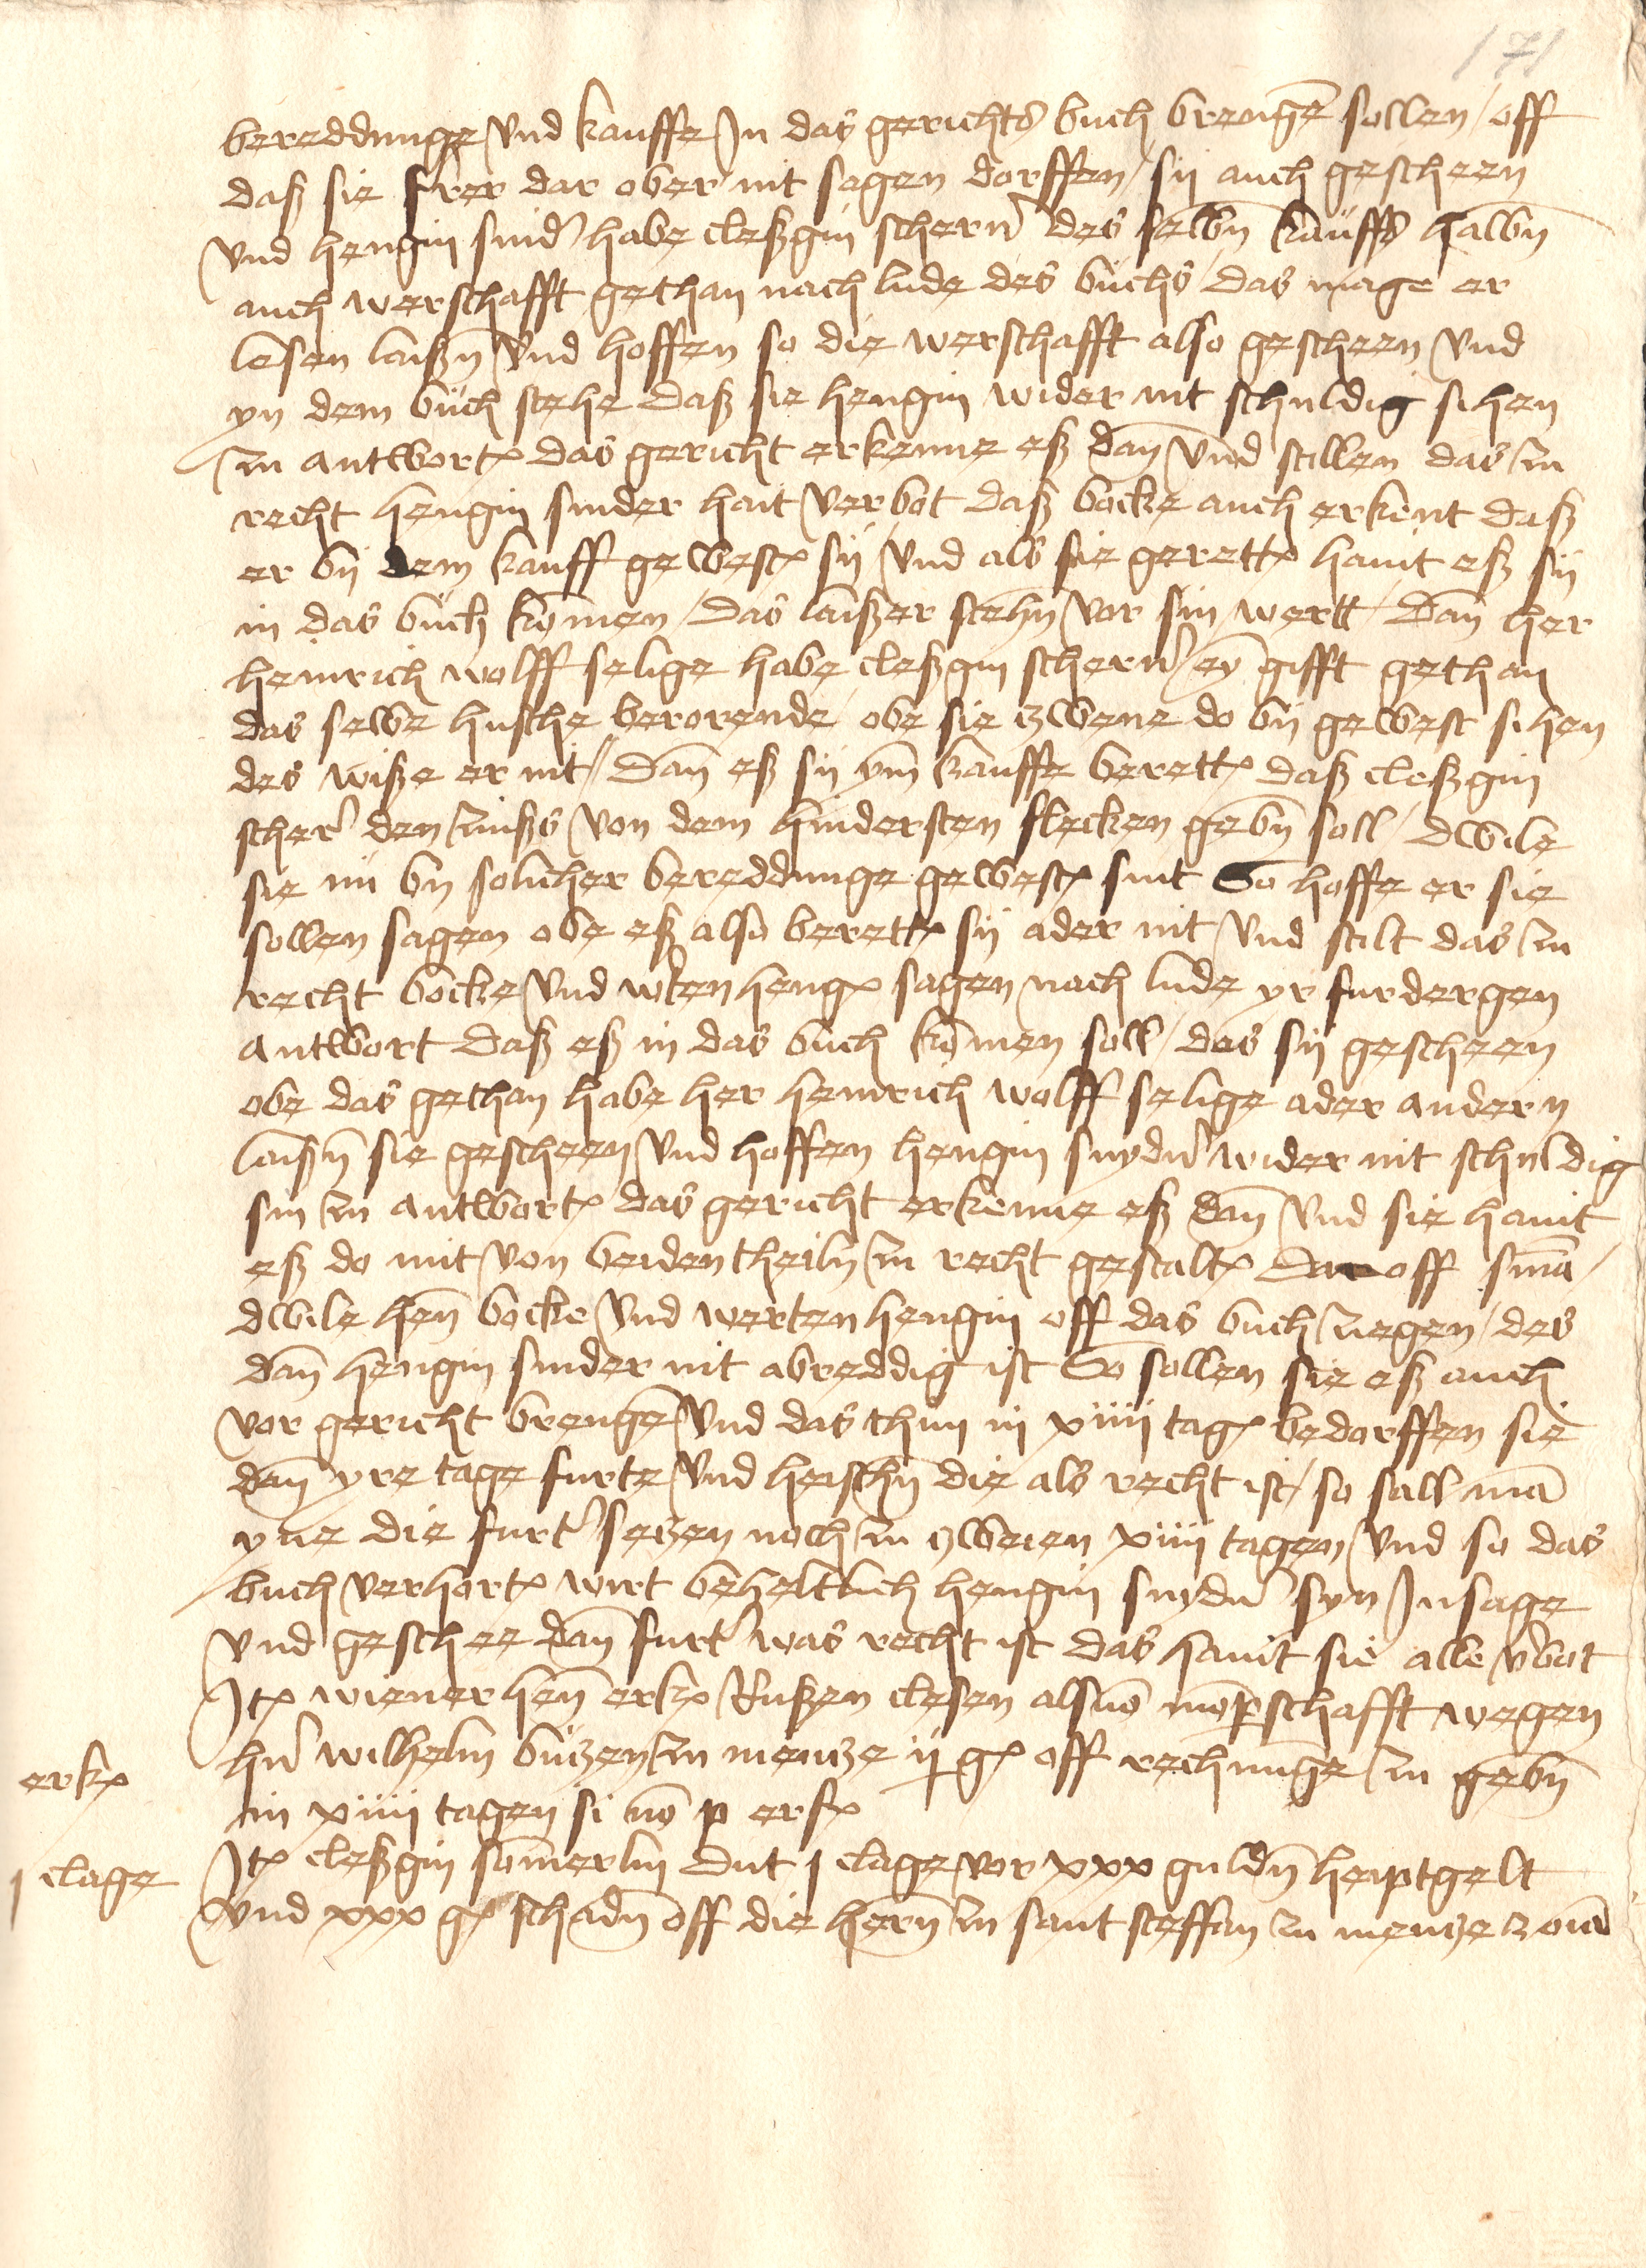 171
bereddunge vnd kauffe Jn das gerichts buch brengē sollen / off
daß sie frer dar ober nit sagen dorffen / sij auch gescheen
vnd hengin snid' habe cleßgin scherr' des selbn̄ kauffs halbn̄
auch werschafft gethan nach lude des buchs / das mage er
lesen laißn̄ vnd hoffen so die werschafft also gescheen vnd
yn dem buch stehe daß sie hengin wider nit schuldig sihen
zu antwort͛ das gericht erkenne eß dan̄ vnd stillen das zu
recht hengin snider hait verbot daß bocke auch erkent daß
er bij dem kauff gewest͛ sij / vnd als sie gerett͛ hanit eß sij
in das buch kōmen / das laißer stehn̄ vor sin wertt / Dan̄ her
heinrich wolff selige habe cleßgin scherr' eȳ gifft gethan
das selbe husche berorende / obe sie zwene do bij gewest sihen
des wiße er nit / Dan̄ eß sij ym̄ kauffe berett͛ daß cleßgin
scher' den zinßs von dem hindersten flecken gebn̄ soll / dwile
sie nu by solicher bereddunge gewest͛ sint So hoffe er sie
sollen sagen obe eß also berett͛ sij ader nit vnd stilt das zu
recht bocke vnd wken heng͛ sagen nach lude yr furdergen
antwort daß eß in das buch kōmen soll / das sij gescheen
obe das gethan habe her heinrich wolff selige ader andern
laißn̄ sie gescheen vnd hoffen hengin snyd' wider nit schuldig
sin zu antwort͛ das gericht erkenne eß dan̄ vnd sie hanit
eß do mit von beiden theiln̄ zu recht gestalt͛ Dar off sn̄a /
dwile hen̄ bocke vnd wertenhengin off das buch ziegen / des
dan̄ hengin snider nit abreddig ist So sollen sie eß auch
vor gericht brengē vnd das thun in xiiii tag͛ bedorffen sie
dan̄ yre tage furte vnd heischn̄ die als recht ist / so sall mā
yne die furt' setzen noch zu zweien xiiii tagen vnd so das
buch verhort͛ wirt beheltlich hengin snyd' syn Jnsage
vnd geschee dan̄ furt' was recht ist das hanit sie alle v'bot
Jt͛ wiener hen̄ erk͛ Rußen clesen als vō mōpschafft wegen
hr' wilhelm butzen zu mentze ij g͛ off rechnunge zu gebn̄
in xiiii tagen si nō p erf͛
erk͛
Jt͛ cleßgin sōmerlin dut j clage vor xxx guldn̄ heiptgelt
j clage
vnd xxx g͛ schadn̄ off die hern̄ zu sant steffan zu mentze